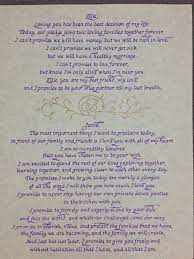 Ellie,
Loving you has been the best decision of my life.
Today, our pledge joins two loving families together forever.
I can't promise we will have money, but we will be rich in love.
I can't promise we will never get sick,
but we will have a healthy marriage.
I can't promise to love forever,
but know I'm only alive when I'm near you
Ellie, you are my best friend, my love,
and I promise to be your true partner till my last breath.
Jacob,
The most important thing I want to proclaim today,
in front of our family and friends is I love you with all of my heart.
I am so incredibly honored
that you have chosen me to be your wife.
I am excited to spend the rest of our lives exploring together,
learning together, and growing closer to each other every day.
The promises I make to you today are merely a glimpse
of all the ways I will show you how much I love you.
I promise to never stop having our own private dance parties
in the kitchen with you.
I promise to fiercely and eagerly stand by our side and
face the world and whatever challenges come our way.
I promise to cherish, value, and protect the families that we have,
the family we are becoming, and the family we will create.
And last but not least, I promise to give you freely and
without hesitation all that I have, all that I am, with